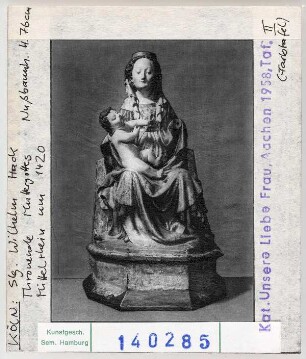 KÖLN: Slg. Wilhelm Hack
Thronende Muttergottes
Mittelrhein um 1420
Nußbaumh. H. 76cm
Kat. Unsere Liebe Frau, Aachen 1958, Taf. II
(Farbtafel)
Kunstgesch.
Sem. Hamburg
140285